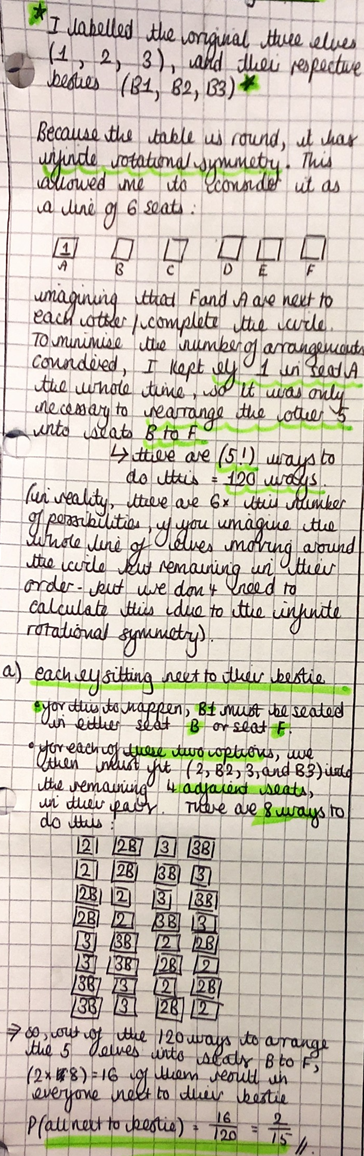 * I labelled the original three elves
(1, 2, 3), and their respective
besties (B1, B2, B3) *
Because the table is round, it has
infinite rotational symmetry. This
allowed me to consider it as
a line of 6 seats:
1
A B C D E F
imagining that F and A are next to
each other / complete the circle.
To minimise the number of arrangements
considered, I kept elf 1 in seat A
the whole time, so it was only
necessary to rearrange the other 5
into seats B to F
↳ there are (5!) ways to
do this = 120 ways.
(in reality, there are 6x this number
of possibilities, if you imagine the
whole line of elves moving around
the circle but remaining in their
order - but we don't need to
calculate this (due to the infinite
rotational symmetry).
a) each elf sitting next to their bestie
• for this to happen, B1 must be seated
in either seat B or seat F.
• for each of these two options, we
then must fit (2, B2, 3, and B3) into
the remaining 4 adjacent seats,
in their pair. There are 8 ways to
do this:
2 2B 3 3B
2 2B 3B 3
2B 2 3 3B
2B 2 3B 3
3 3B 2 2B
3 3B 2B 2
3B 3 2 2B
3B 3 2B 2
⇒ so, out of the 120 ways to arrange
the 5 elves into seats B to F,
(2×8) = 16 of them result in
everyone next to their bestie
P(all next to bestie) = 16/120 = 2/15 //